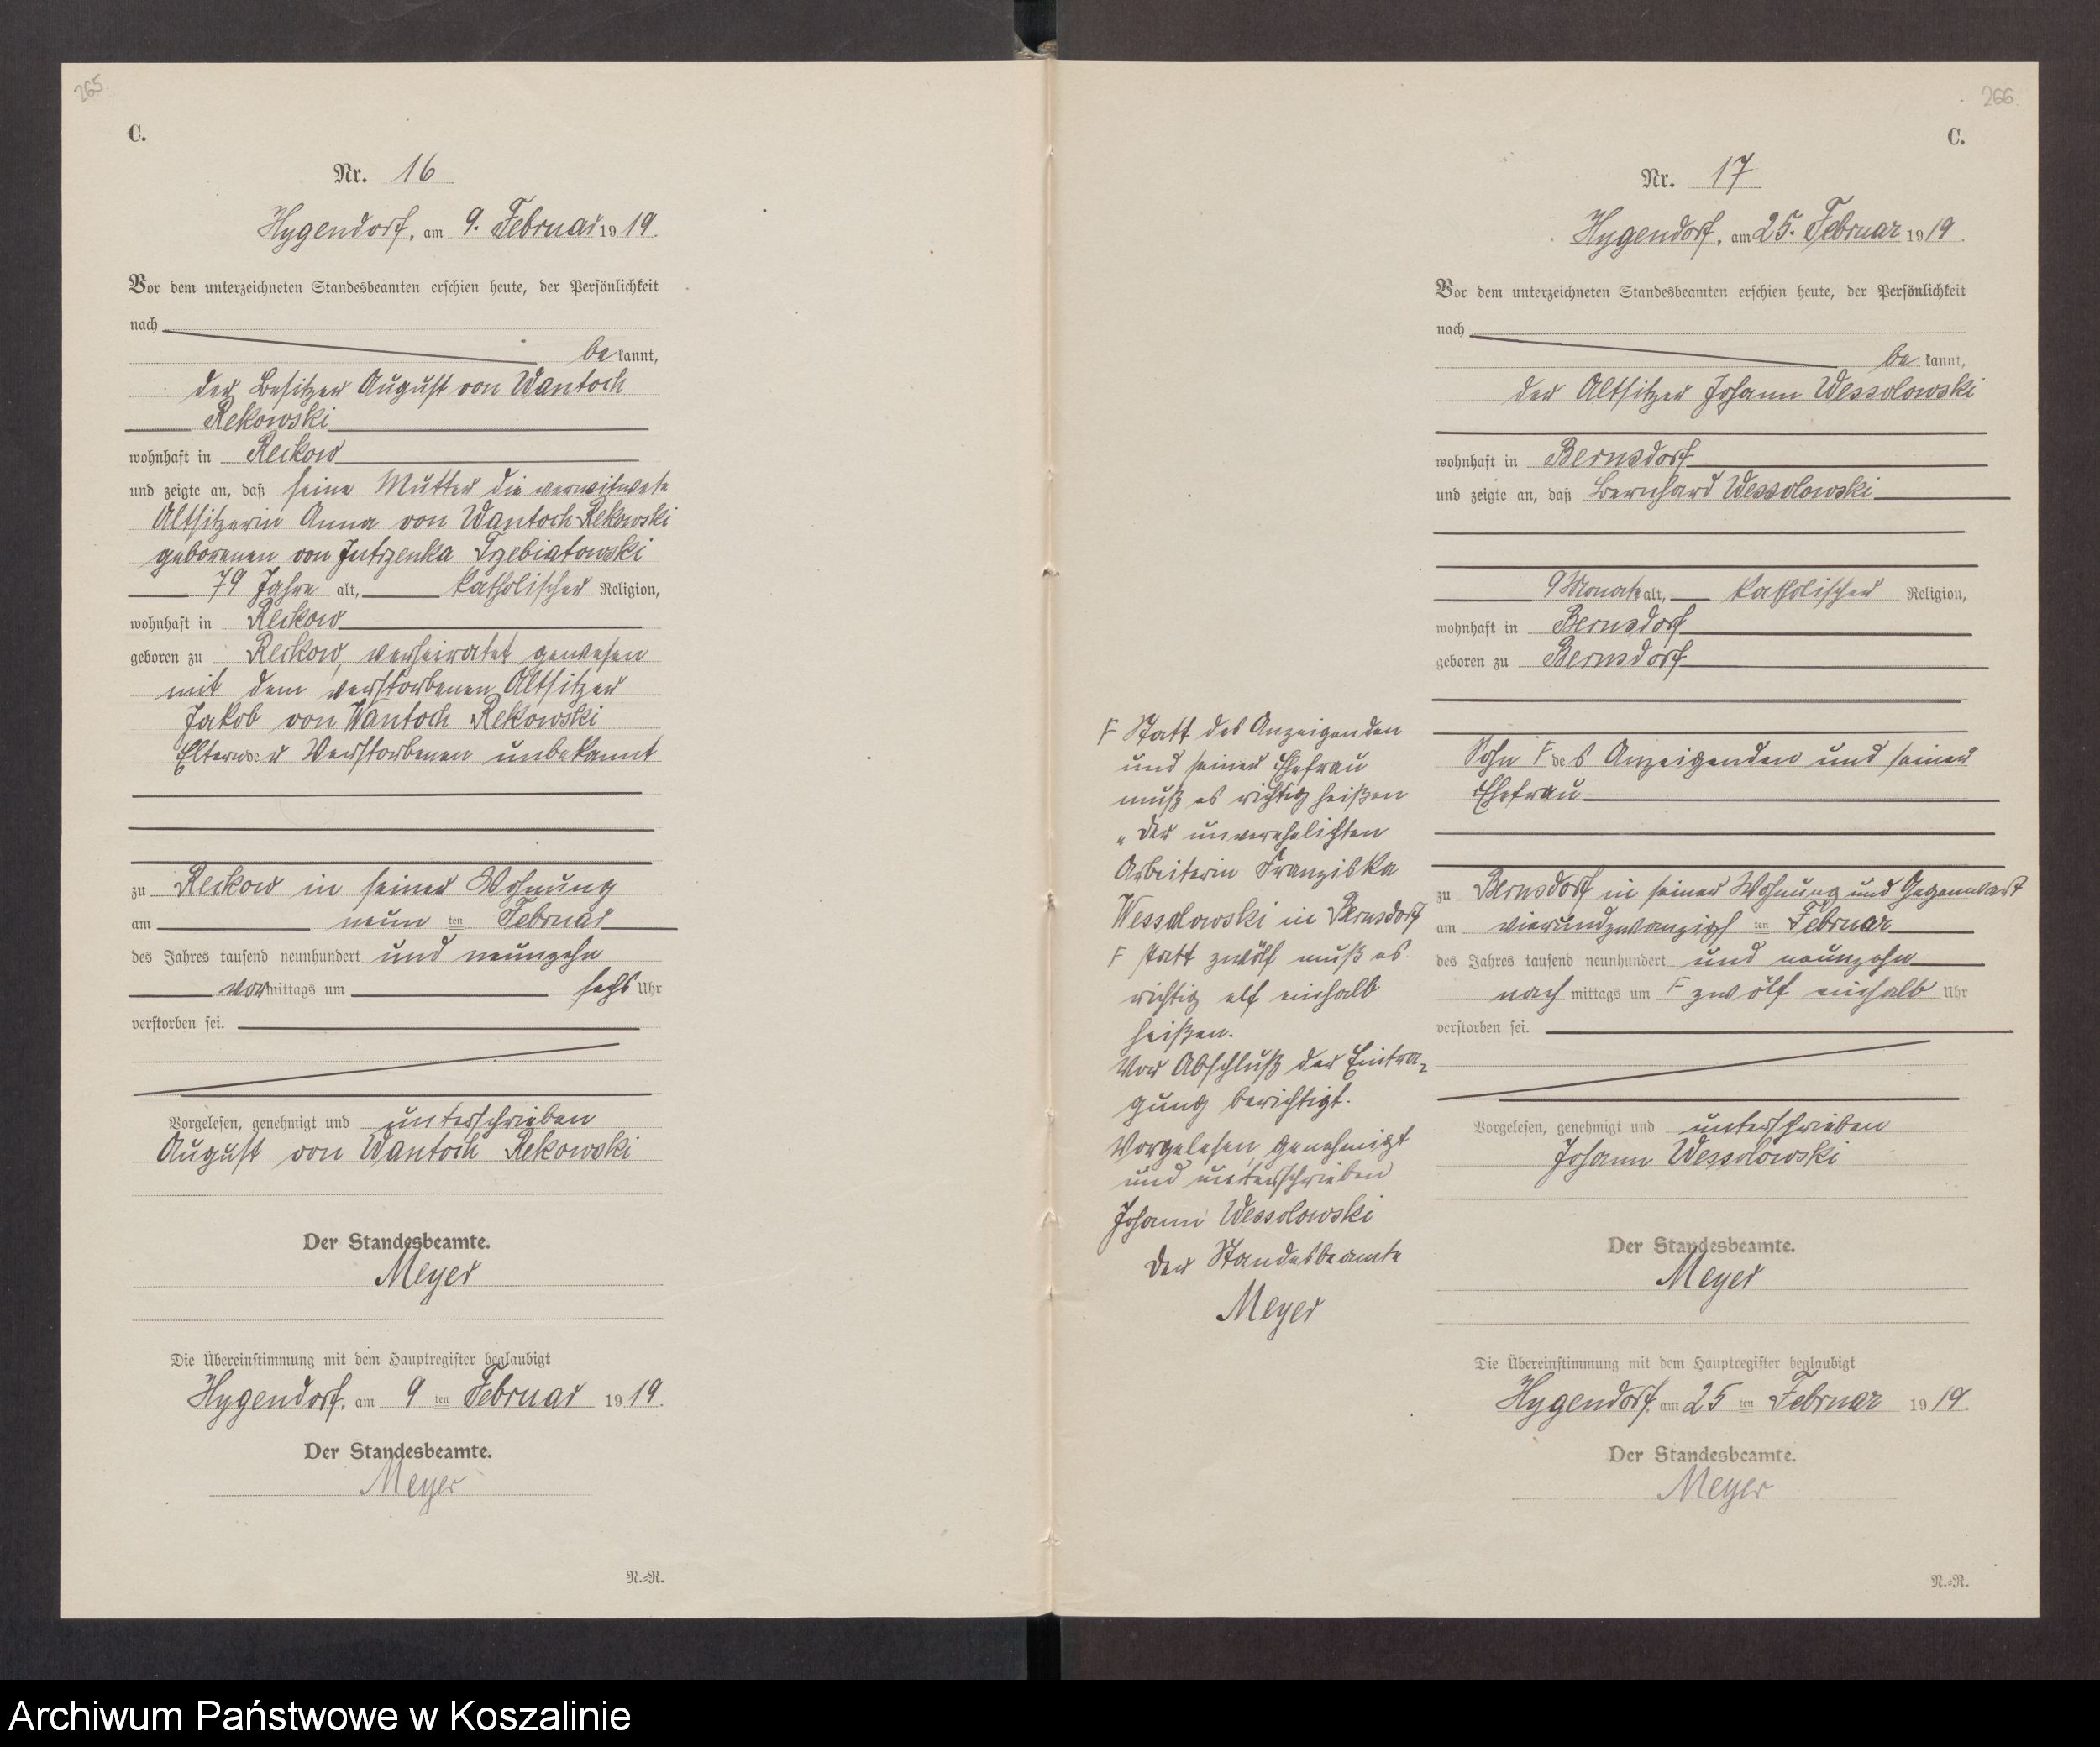 265
C.
Nr. 16
Hygendorf, am 9. Februar 1919.
Vor dem unterzeichneten Standesbeamten erschien heute, der Persönlichkeit
nach
be kannt,
der Besitzer August von Wantoch
Rekowski
wohnhaft in Reckow
und zeigte an, daß seine Mutter die verwitwete
Altsitzerin Anna von Wantoch-Rekowski
geborenen von Jutrzenka Trzebiatowski
79 Jahre alt, katholischer Religion,
wohnhaft in Reckow
geboren zu Reckow, verheiratet gewesen
mit dem verstorbenen Altsitzer
Jakob von Wantoch Rekowski
Eltern der Verstorbenen unbekannt
zu Reckow in seiner Wohnung
am neun ten Februar
des Jahres tausend neunhundert und neunzehn
vormittags um sechs Uhr
verstorben sei.
Vorgelesen, genehmigt und unterschrieben
August von Wantoch Rekowski
Der Standesbeamte.
Meyer
Die Übereinstimmung mit dem Hauptregister beglaubigt
Hygendorf, am 9 ten Februar 1919.
Der Standesbeamte.
Meyer
N.=N.
266
C.
Nr. 17
Hygendorf, am 25. Februar 1919.
Vor dem unterzeichneten Standesbeamten erschien heute, der Persönlichkeit
nach
be kannt,
der Altsitzer Johann Wessolowski
wohnhaft in Bernsdorf
und zeigte an, daß Bernhard Wessolowski
9 Monate alt, katholischer Religion,
wohnhaft in Bernsdorf
geboren zu Bernsdorf
Sohn F des Anzeigenden und seiner
Ehefrau
zu Bernsdorf in seiner Wohnung und Gegenwart
am vierundzwanzigsten Februar
des Jahres tausend neunhundert und neunzehn
nach mittags um F zwölf einhalb Uhr
verstorben sei.
Vorgelesen, genehmigt und unterschrieben
Johann Wessolowski
Der Standesbeamte.
Meyer
Die Übereinstimmung mit dem Hauptregister beglaubigt
Hygendorf, am 25 ten Februar 1919.
Der Standesbeamte.
Meyer
N.=N.
F Statt des Anzeigenden
und seiner Ehefrau
muß es richtig heißen
„der unverehelichten
Arbeiterin Franziska
Wessolowski in Bernsdorf
F statt zwölf muß es
richtig elf einhalb
heißen.
Vor Abschluß der Eintra-
gung berichtigt.
Vorgelesen, genehmigt
und unterschrieben
Johann Wessolowski
Der Standesbeamte
Meyer
Archiwum Państwowe w Koszalinie